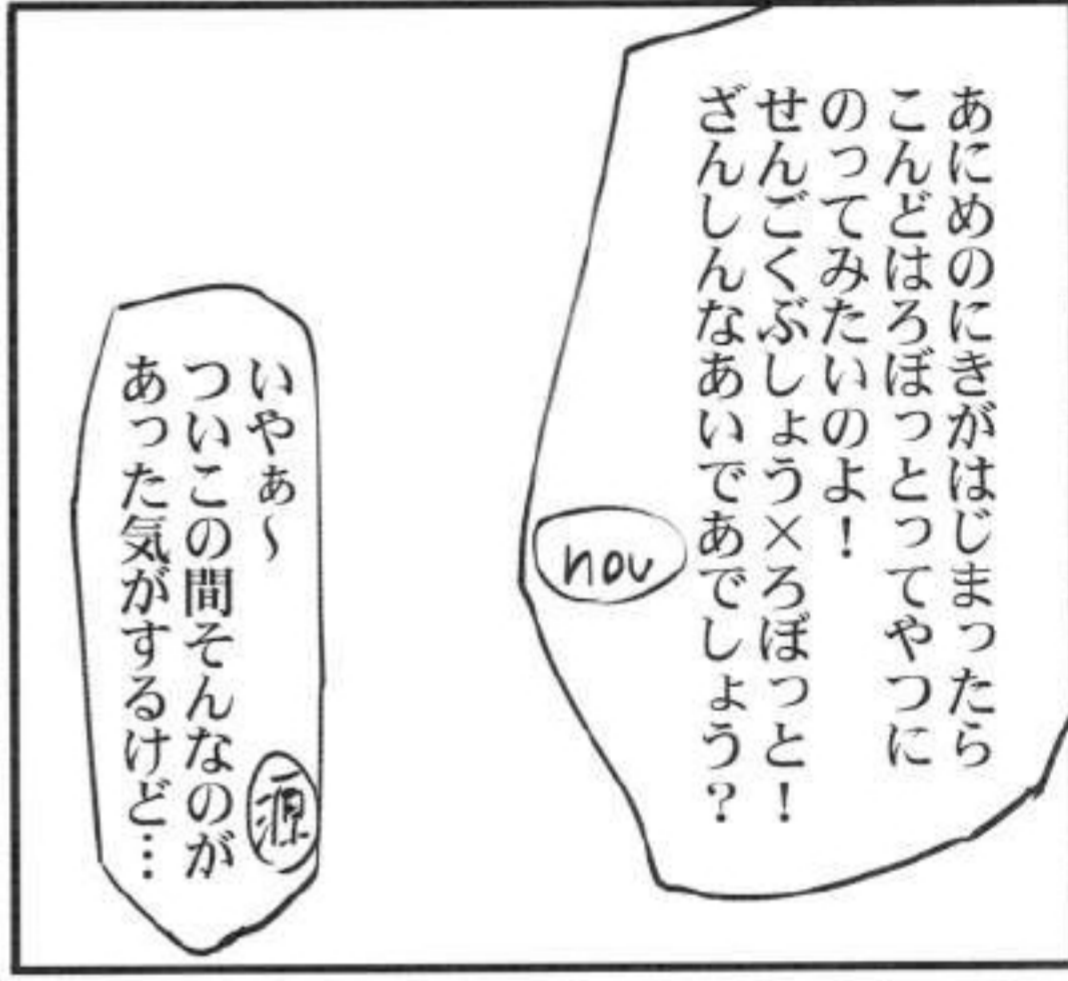 あにめのにきがはじまったら
こんどはろぼっとってやつに
のってみたいのよ！
せんごくぶしょう×ろぼっと！
ざんしんなあいであでしょう？
nou
いやぁ～
ついこの間そんなのが
あった気がするけど…
源